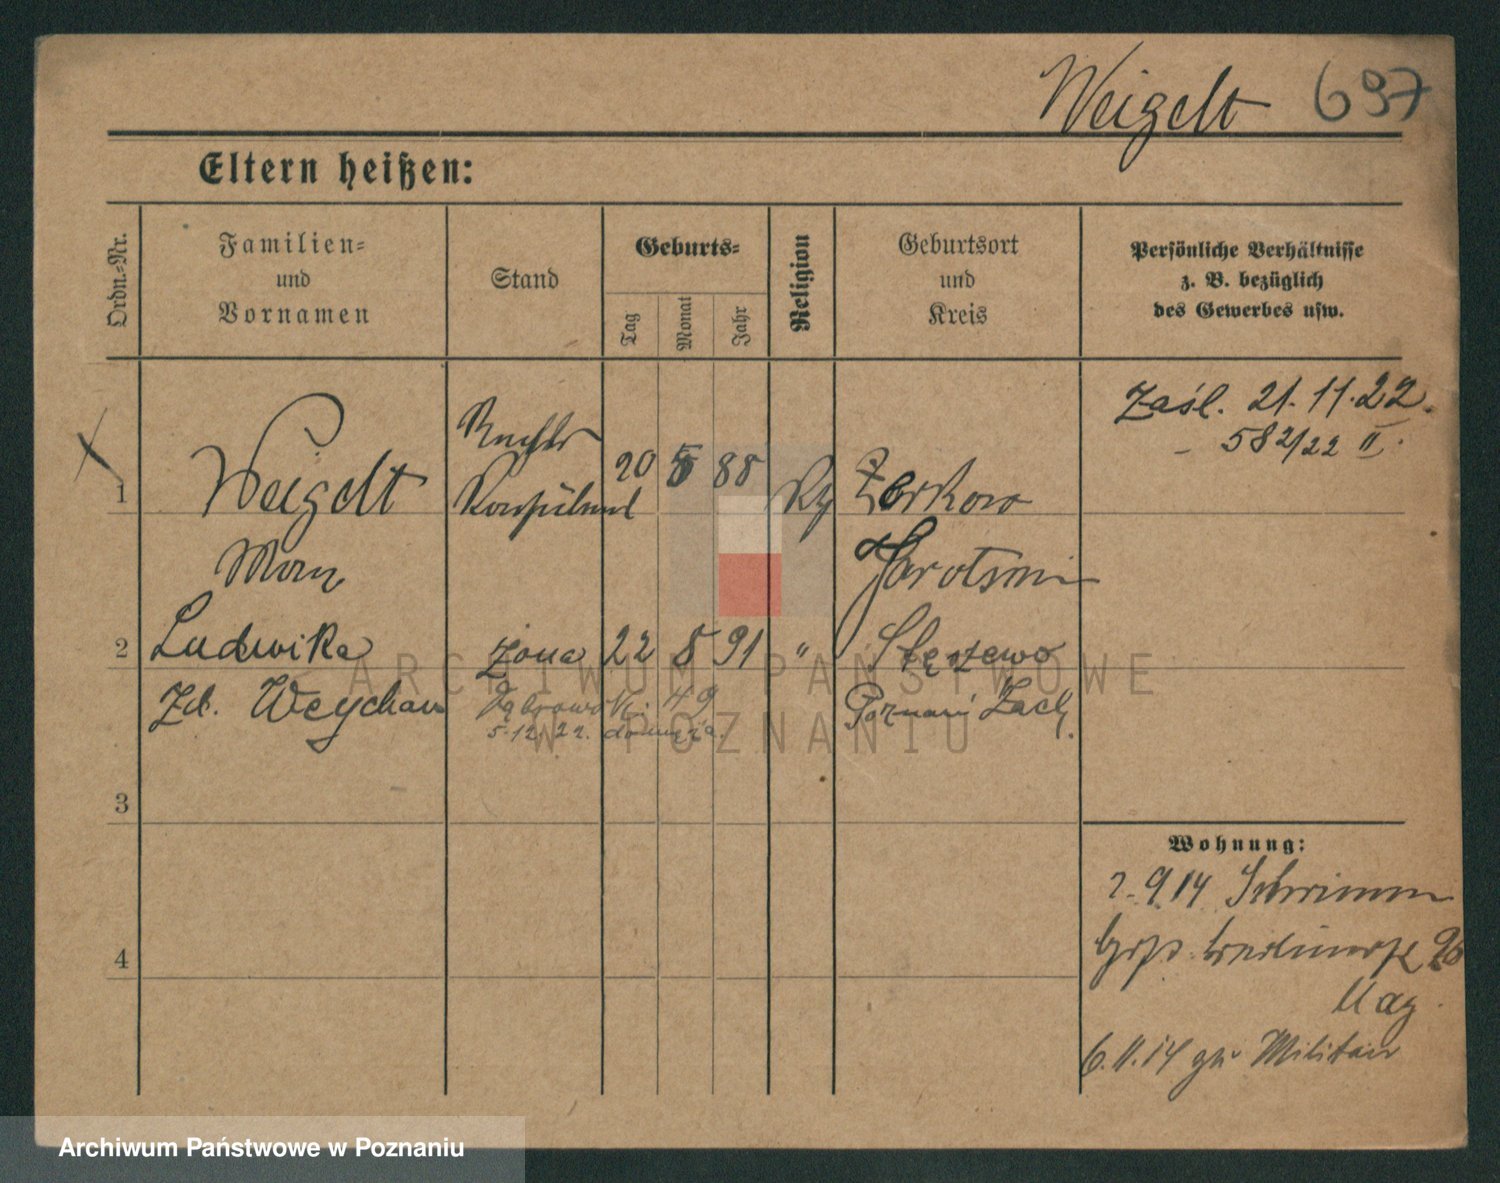 Weigelt 697
Eltern heißen:
Ordn.=Nr.
Familien=
und
Vornamen
Stand
Geburts=
Tag
Monat
Jahr
Religion
Geburtsort
und
Kreis
Persönliche Verhältnisse
z. B. bezüglich
des Gewerbes usw.
Zaśl. 21.11.22.
582/22 II.
1 Weigelt
Rechts
Konsulent
20 5 88
Zerkow
Jarotschin
2 Ludwika żona 22 8 91 " Stęszewo
Zd. Weychan
5.12.22.
Poznań Zach.
3
4
Wohnung:
2.9.14 Schrimm
20
6.11.14 zu Militär
ARCHIWUM PAŃSTWOWE
W POZNANIU
Archiwum Państwowe w Poznaniu